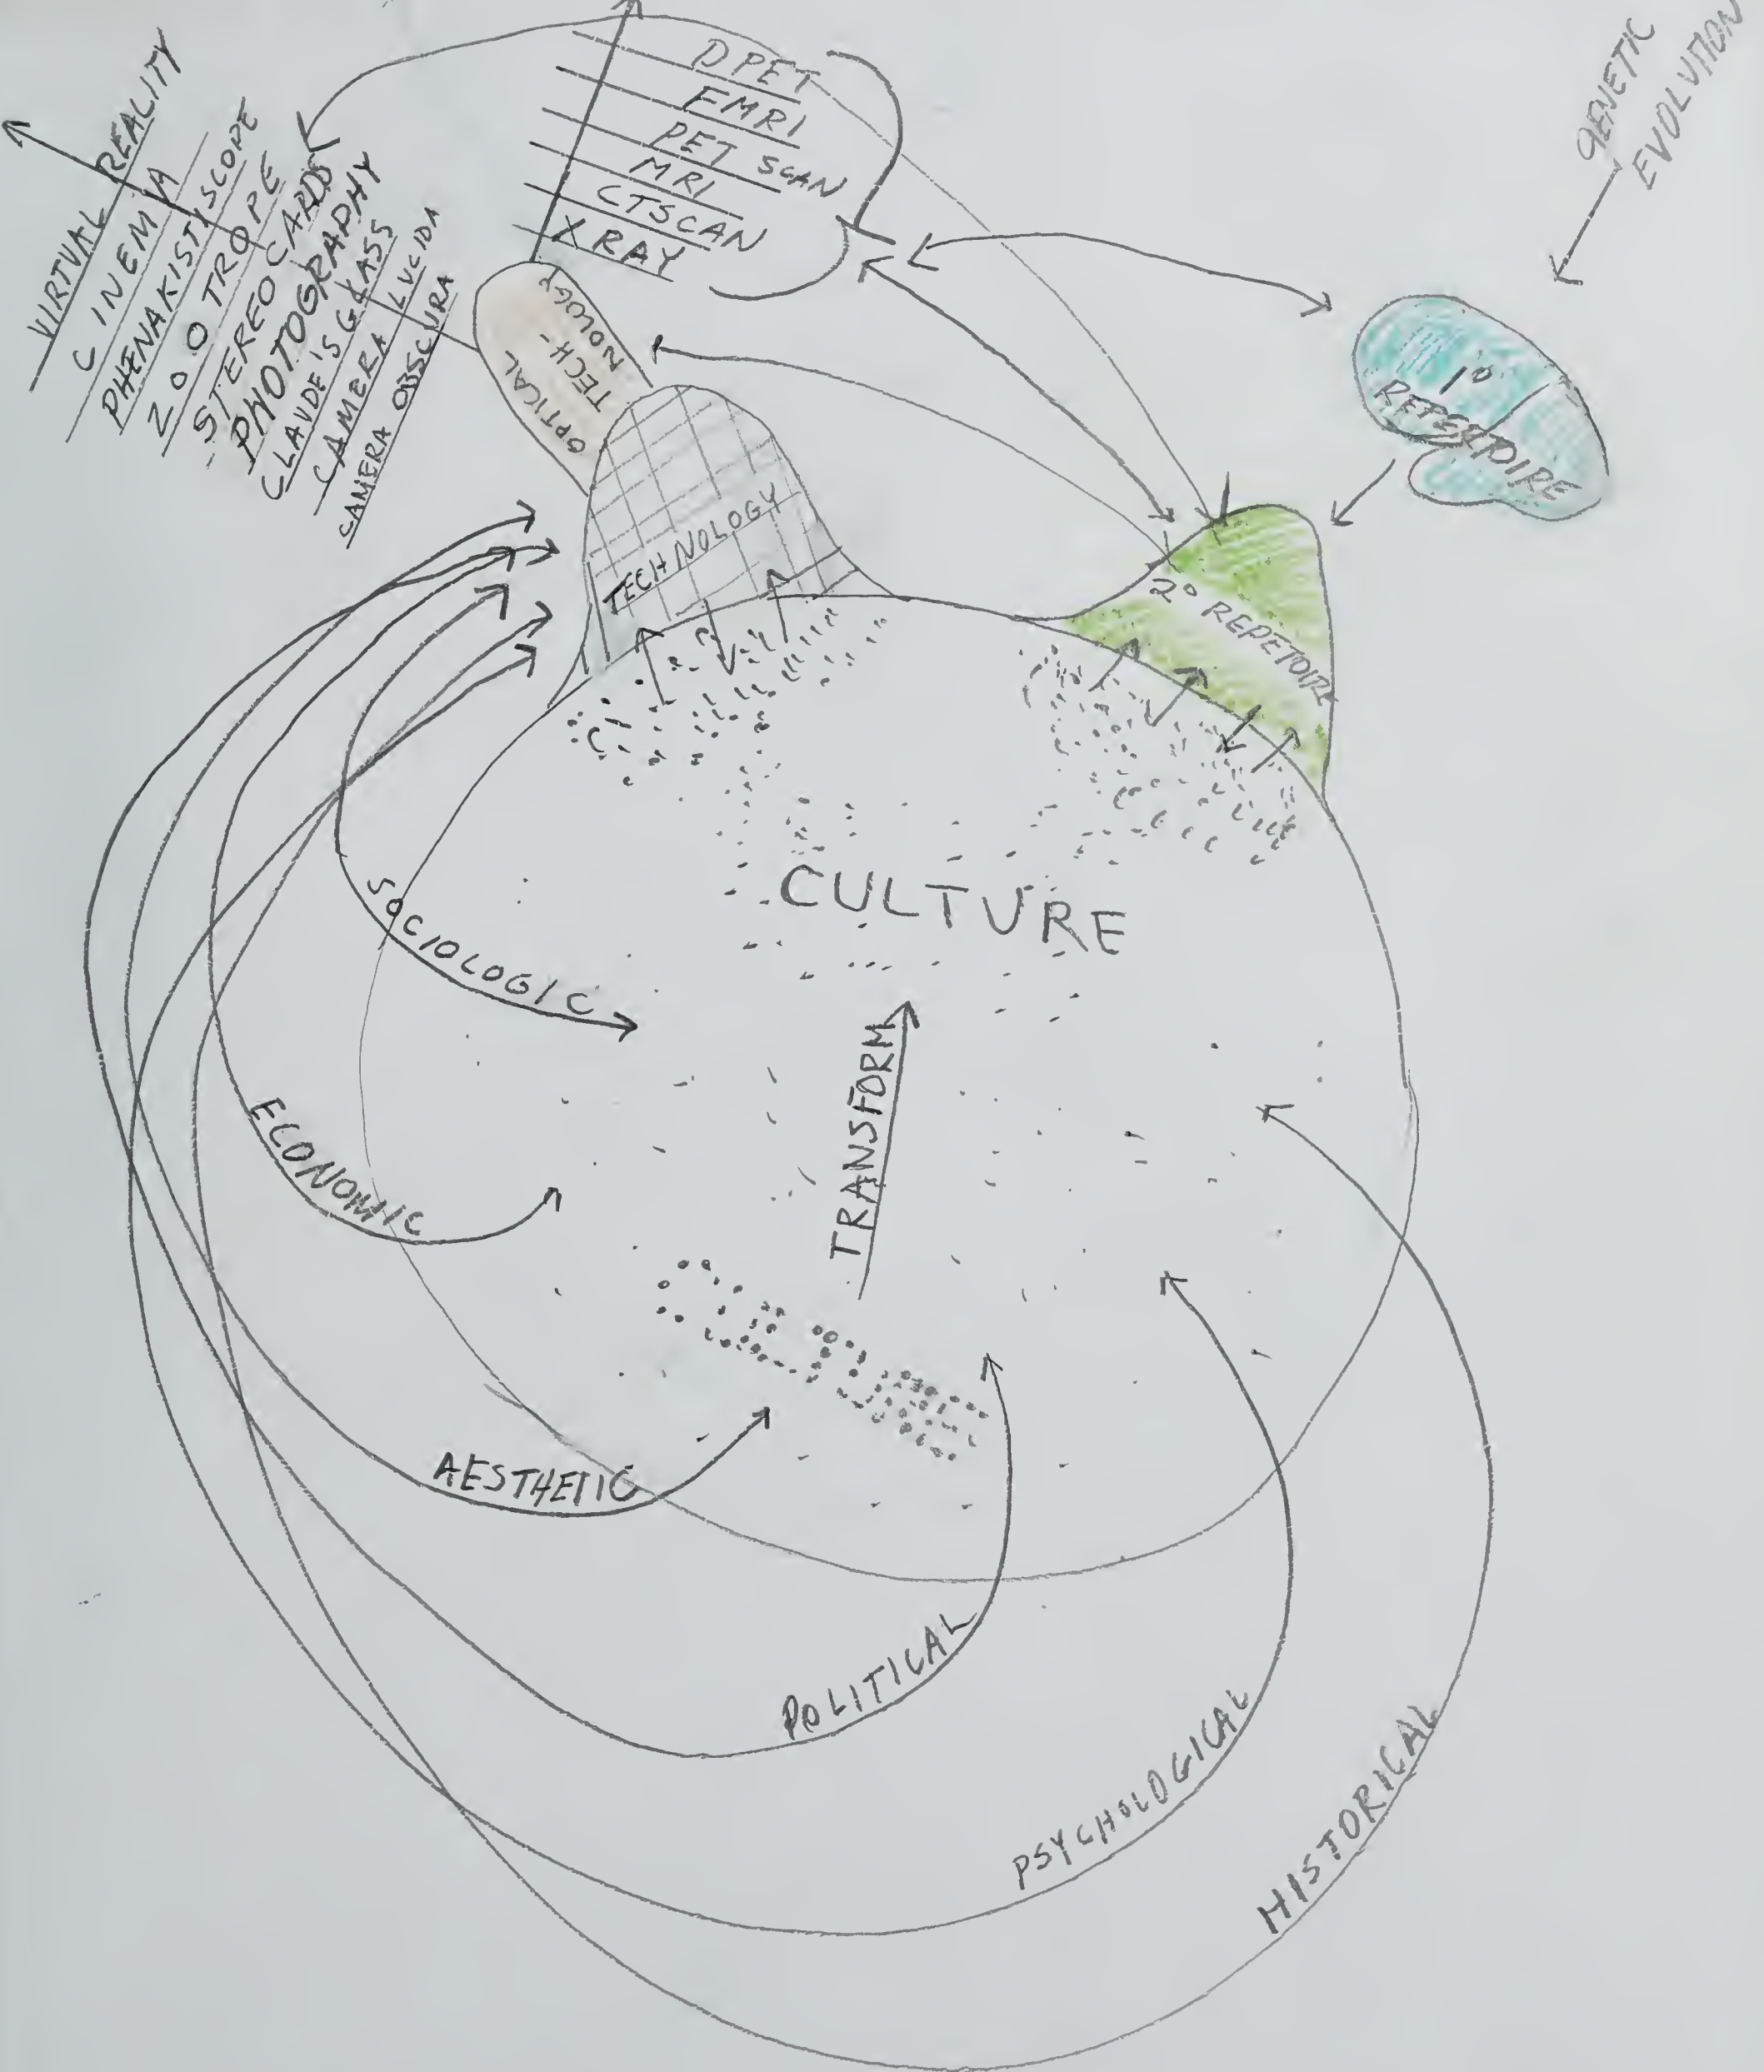 VIRTUAL REALITY
CINEMA
PHENAKISTISCOPE
ZOOTROPE
STEREO CARDS
PHOTOGRAPHY
CLAUDE'S GLASS
CAMERA LUCIDA
CAMERA OBSCURA
DPET
FMRI
PET SCAN
MRI
CTSCAN
XRAY
GENETIC
EVOLUTION
OPTICAL
TECH-
NOLOGY
1°
REPERTOIRE
TECHNOLOGY
2° REPETOIRE
CULTURE
SOCIOLOGIC
TRANSFORM
ECONOMIC
CULTURE
AESTHETIC
POLITICAL
PSYCHOLOGICAL
HISTORICAL